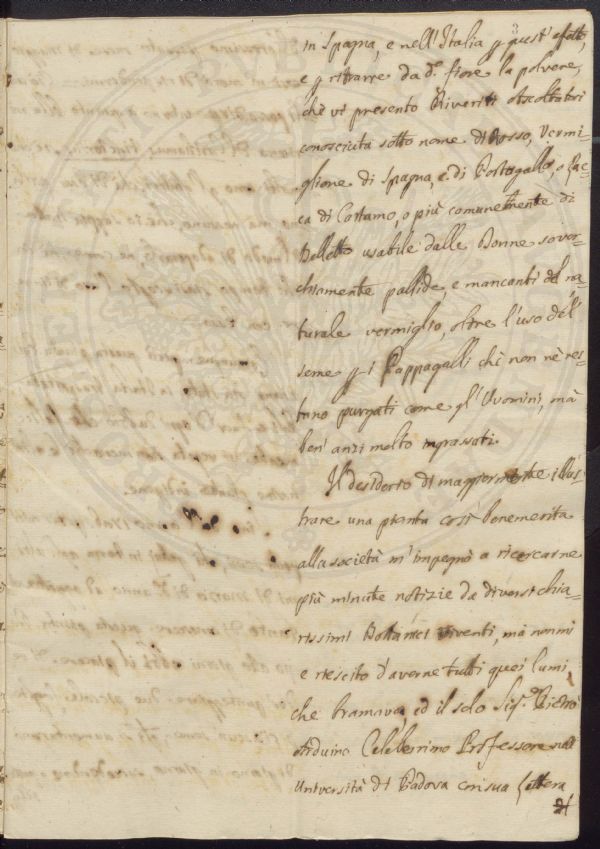 3
in Spagna, e nell'Italia p quest' effetto,
e p ritrarre da dº fiore la polvere,
chè vi presento Riveriti Ascoltatori
conosciuta sotto nome di Rosso, Vermi=
glione di Spagna, e di Portogallo, o Lac=
ca di Cartamo, o più comunemente di
Belletto usabile dalle Donne sover=
chiamente pallide, e mancanti del na=
turale vermiglio, oltre l'uso del
seme p i Pappagalli chè non nè res=
tano purgati come gl' Uomini, mà
ben' anzi molto ingrassati.
Il desiderio di maggiormente illus=
trare una pianta così benemerita
alla società m' impegnò a ricercarne
più minute notizie da diversi chia=
rissimi Bottanici viventi, mà non mi
è riescito d'averne tutti quei lumi
che bramava, ed il solo Sigr. Pietro
Arduino Celeberrimo Professore nell'
Università di Padova con sua lettera
di